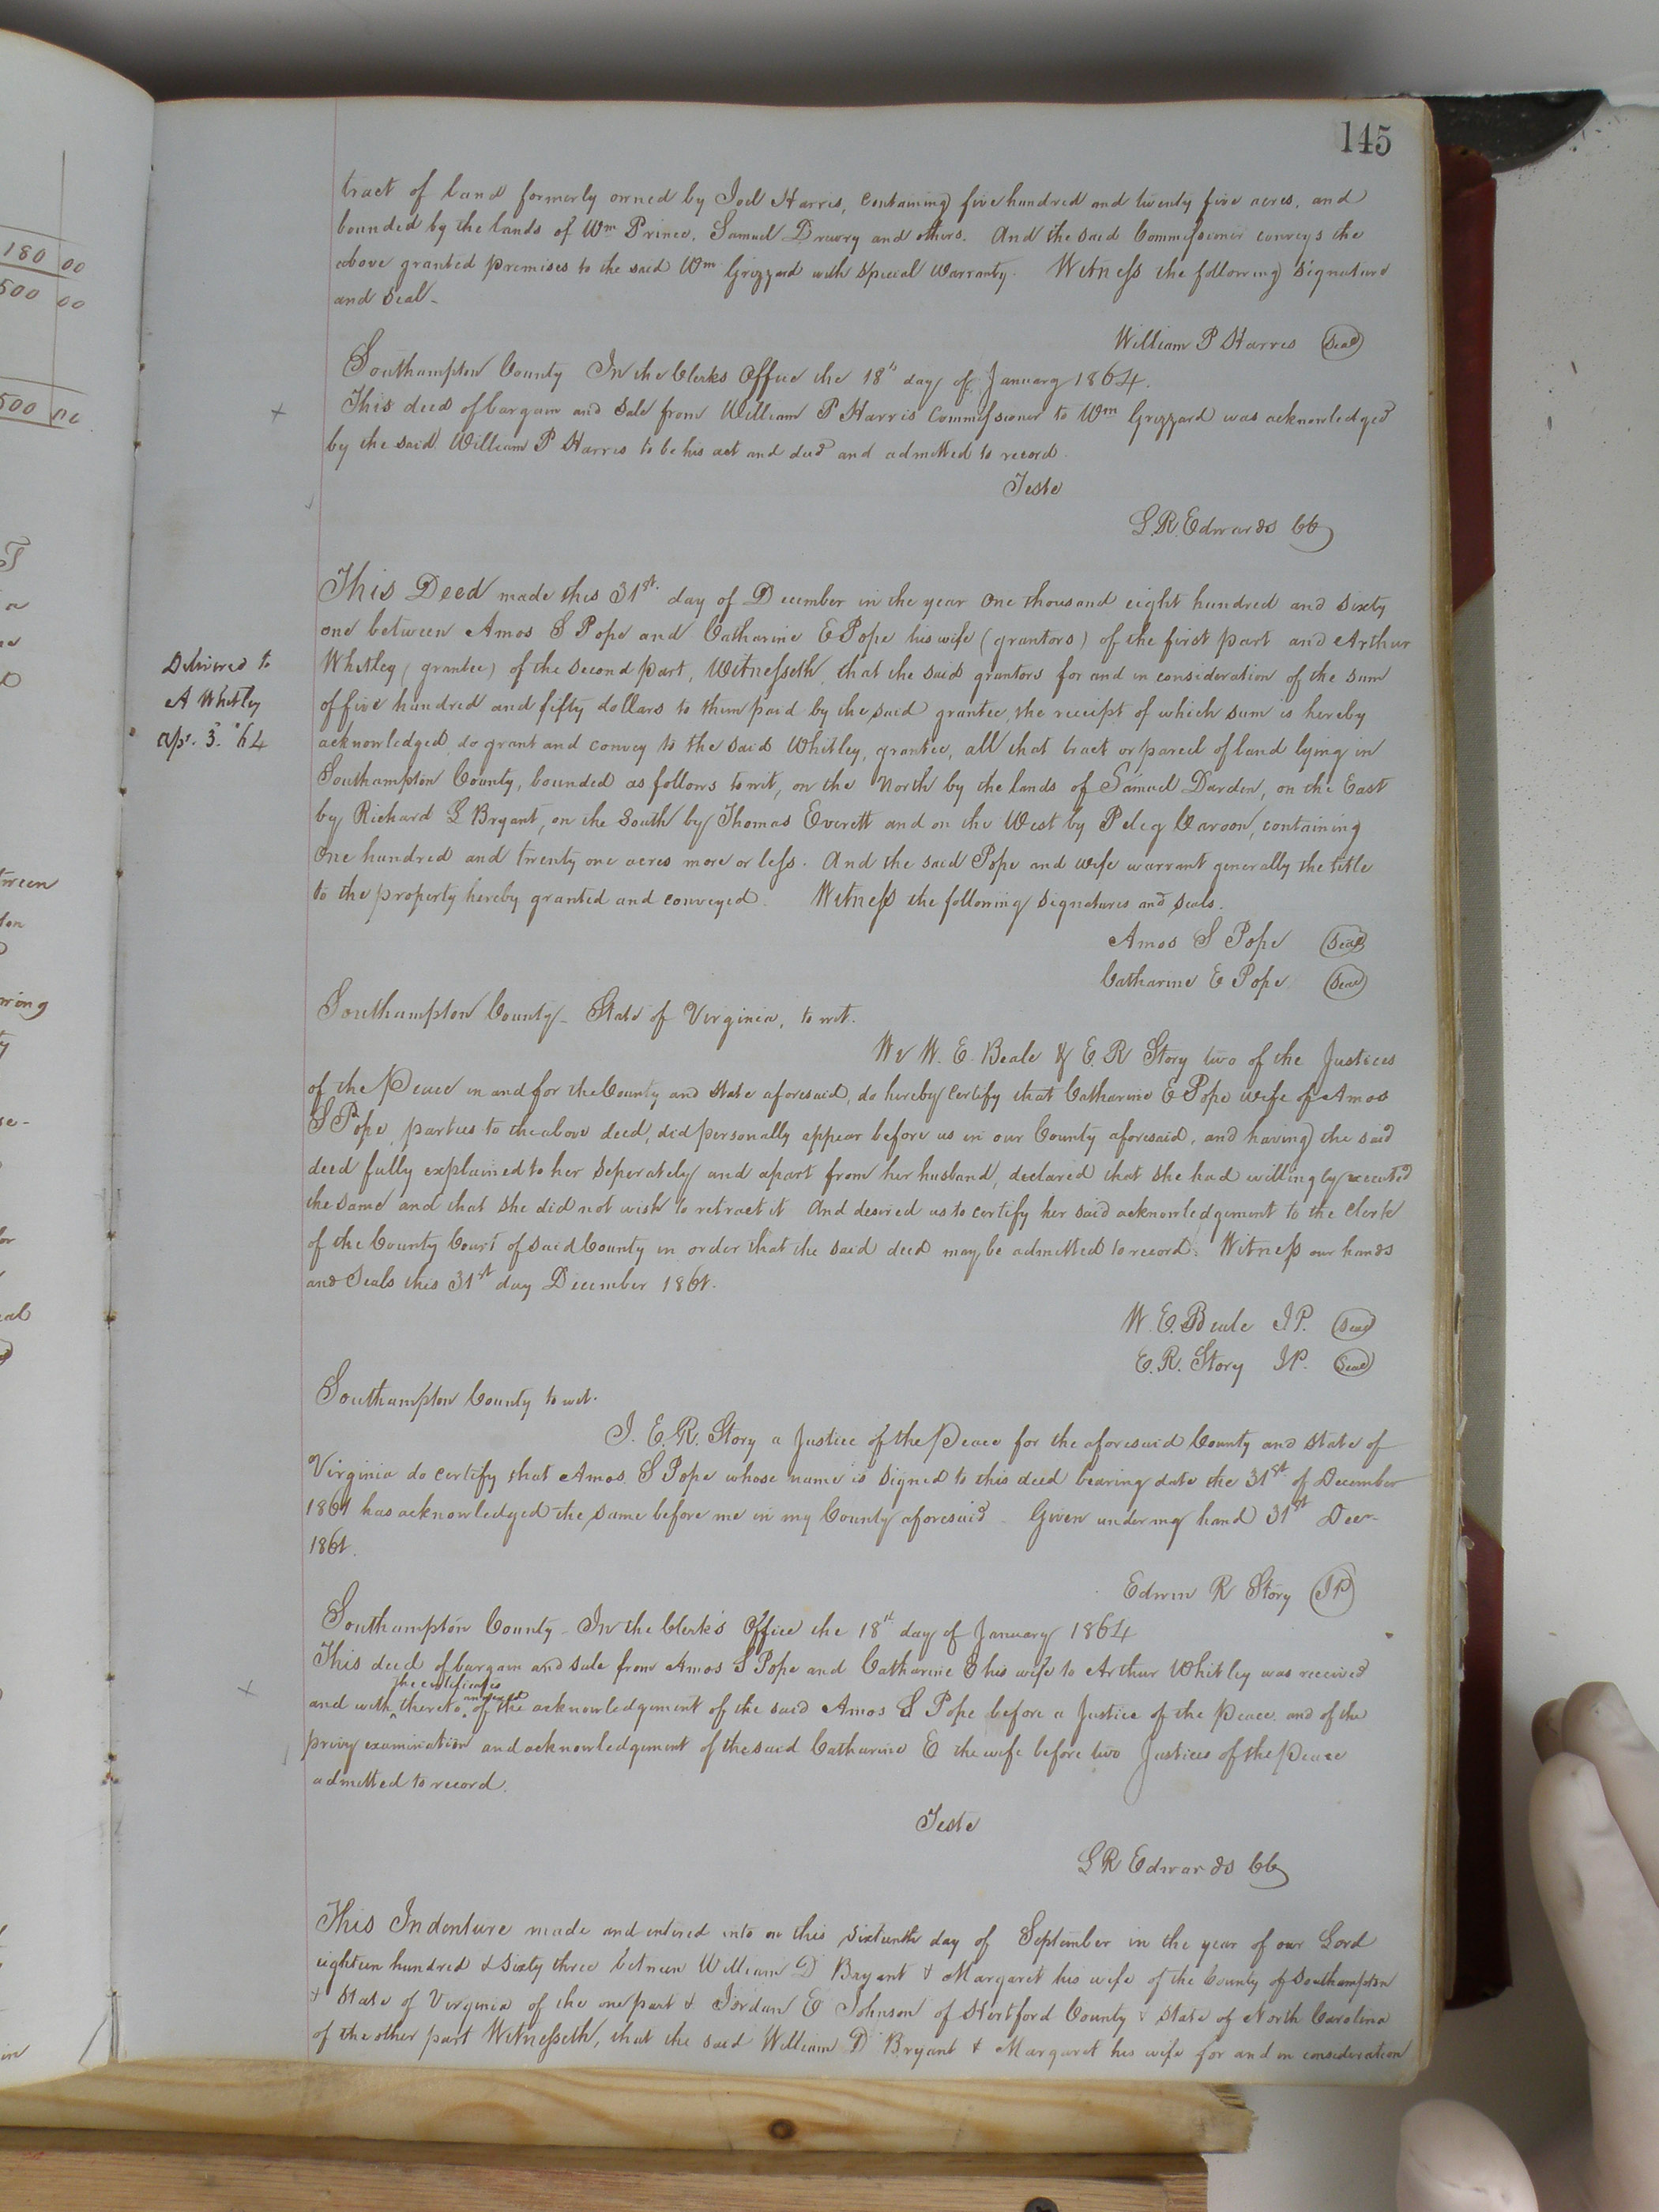 145
180 00
500 00
500 00
tract of land formerly owned by Joel Harris, containing five hundred and twenty five acres, and
bounded by the lands of Wm Prince, Samuel Drewry and others. And the said Commissioner conveys the
above granted premises to the said Wm Grizzard with special warranty. Witness the following signature
and seal-
William P Harris Seal
Southampton County In the Clerks Office the 18th day of January 1864.
This deed of bargain and sale from William P Harris Commissioner to Wm Grizzard was acknowledged
by the said William P Harris to be his act and deed and admitted to record.
Teste
L.R. Edwards CC
This Deed made this 31st day of December in the year One thousand eight hundred and sixty
one between Amos S Pope and Catharine E Pope his wife (grantors) of the first part and Arthur
Whitley (grantee) of the second part, Witnesseth, that the said grantors for and in consideration of the sum
of five hundred and fifty dollars to them paid by the said grantee, the receipt of which sum is hereby
acknowledged do grant and convey to the said Whitley, grantee, all that tract or parcel of land lying in
Southampton County, bounded as follows to wit, on the North by the lands of Samuel Darden, on the East
by Richard L Bryant, on the South by Thomas Everett and on the West by Peleg Caroon, containing
One hundred and twenty one acres more or less. And the said Pope and wife warrant generally the title
to the property hereby granted and conveyed. Witness the following signatures and seals.
Delivered to
A Whitley
Ap. 3. '64
Amos S Pope Seal
Catharine E Pope Seal
Southampton County- State of Virginia, to wit.
We W. E. Beale & E. R Story two of the Justices
of the Peace in and for the County and State aforesaid, do hereby certify that Catharine E Pope wife of Amos
S Pope, parties to the above deed, did personally appear before us in our County aforesaid, and having the said
deed fully explained to her seperately and apart from her husband, declared that she had willingly executed
the same and that she did not wish to retract it And desired us to certify her said acknowledgement to the Clerk
of the County Court of said County in order that the said deed may be admitted to record. Witness our hands
and Seals this 31st day December 1861.
W. E. Beale JP. Seal
E. R. Story JP. Seal
Southampton County to wit.
I. E. R. Story a Justice of the Peace for the aforesaid County and State of
Virginia do certify that Amos S Pope whose name is signed to this deed bearing date the 31st of December
1861 has acknowledged the same before me in my County aforesaid. Given under my hand 31st Decr
1861.
Edwin R Story JP
Southampton County - In the Clerk's Office the 18th day of January 1864
This deed of bargain and sale from Amos S Pope and Catharine E his wife to Arthur Whitley was received
the certificates annexed
and with thereto of the acknowledgement of the said Amos S Pope before a Justice of the Peace, and of the
privy examination and acknowledgement of the said Catharine E the wife before two Justices of the Peace
admitted to record.
Teste
L R Edwards CC
This Indenture made and entered into on this sixteenth day of September in the year of our Lord
eighteen hundred & sixty three between William D Bryant & Margaret his wife of the County of Southampton
& State of Virginia of the one part & Jordan E Johnson of Hertford County & State of North Carolina
of the other part Witnesseth, that the said William D Bryant & Margaret his wife for and in consideration